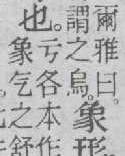 爾雅曰。
謂之烏。
象形
也。
亏各本作
象气之舒